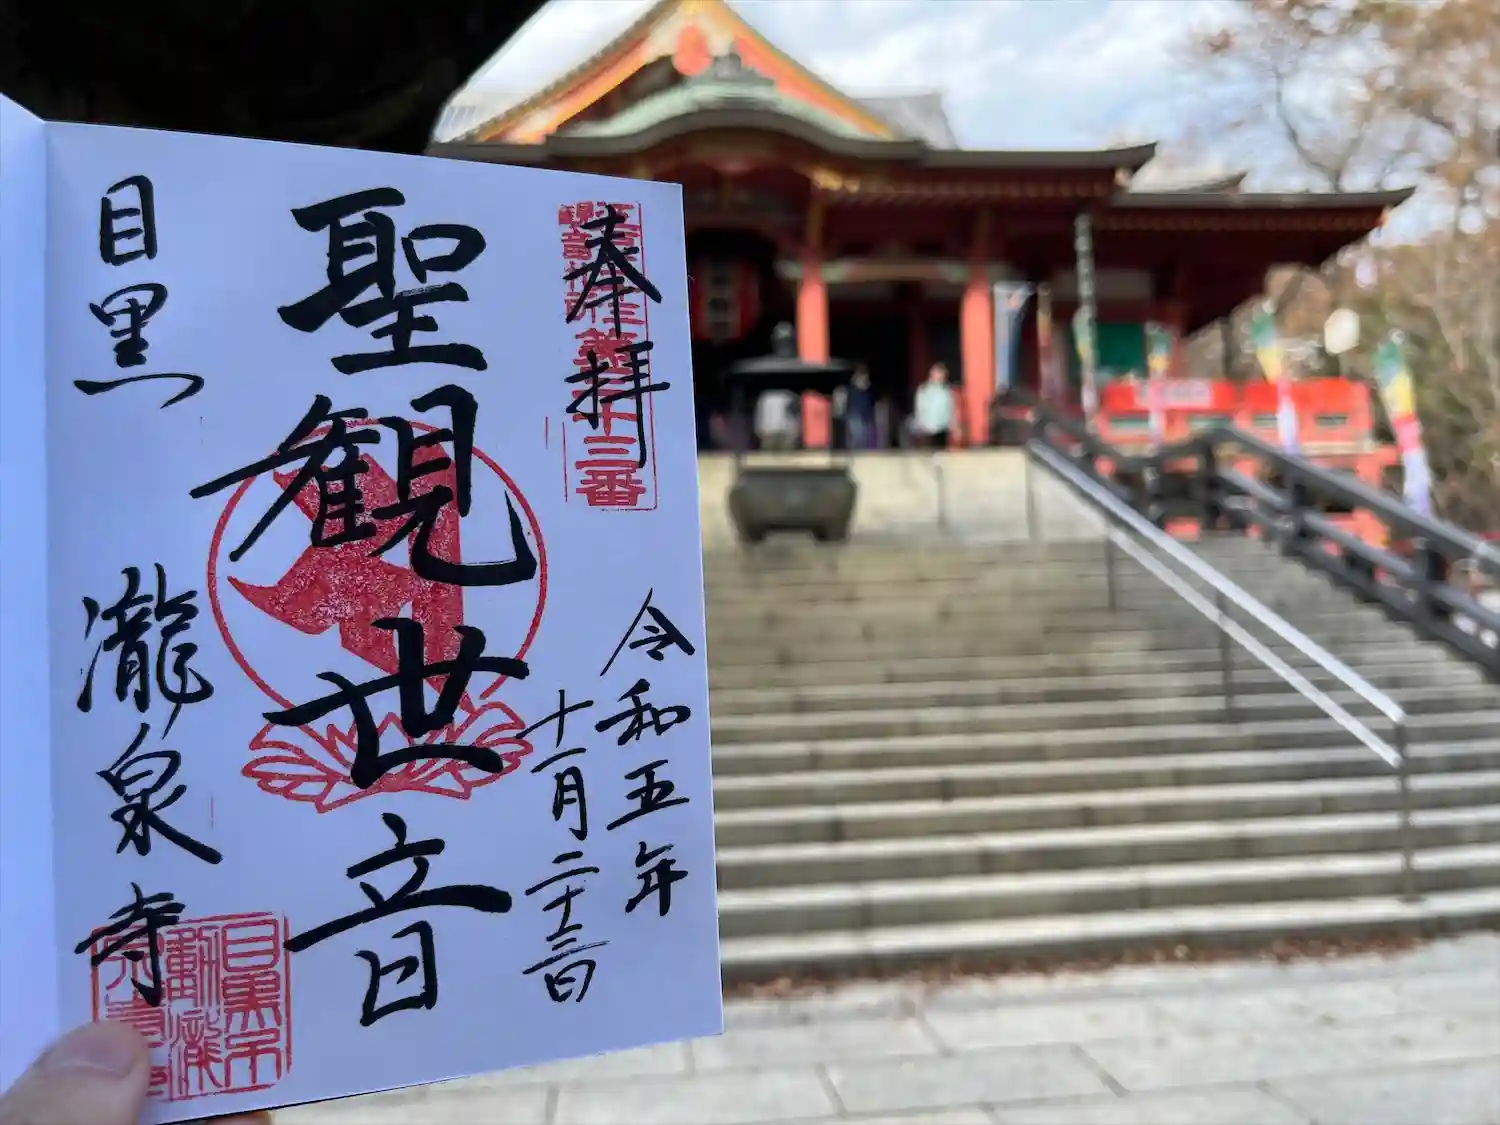 奉拝
第三十三番
令和五年
十一月二十三日
聖観世音
目黒
瀧泉寺
目黒不
動瀧